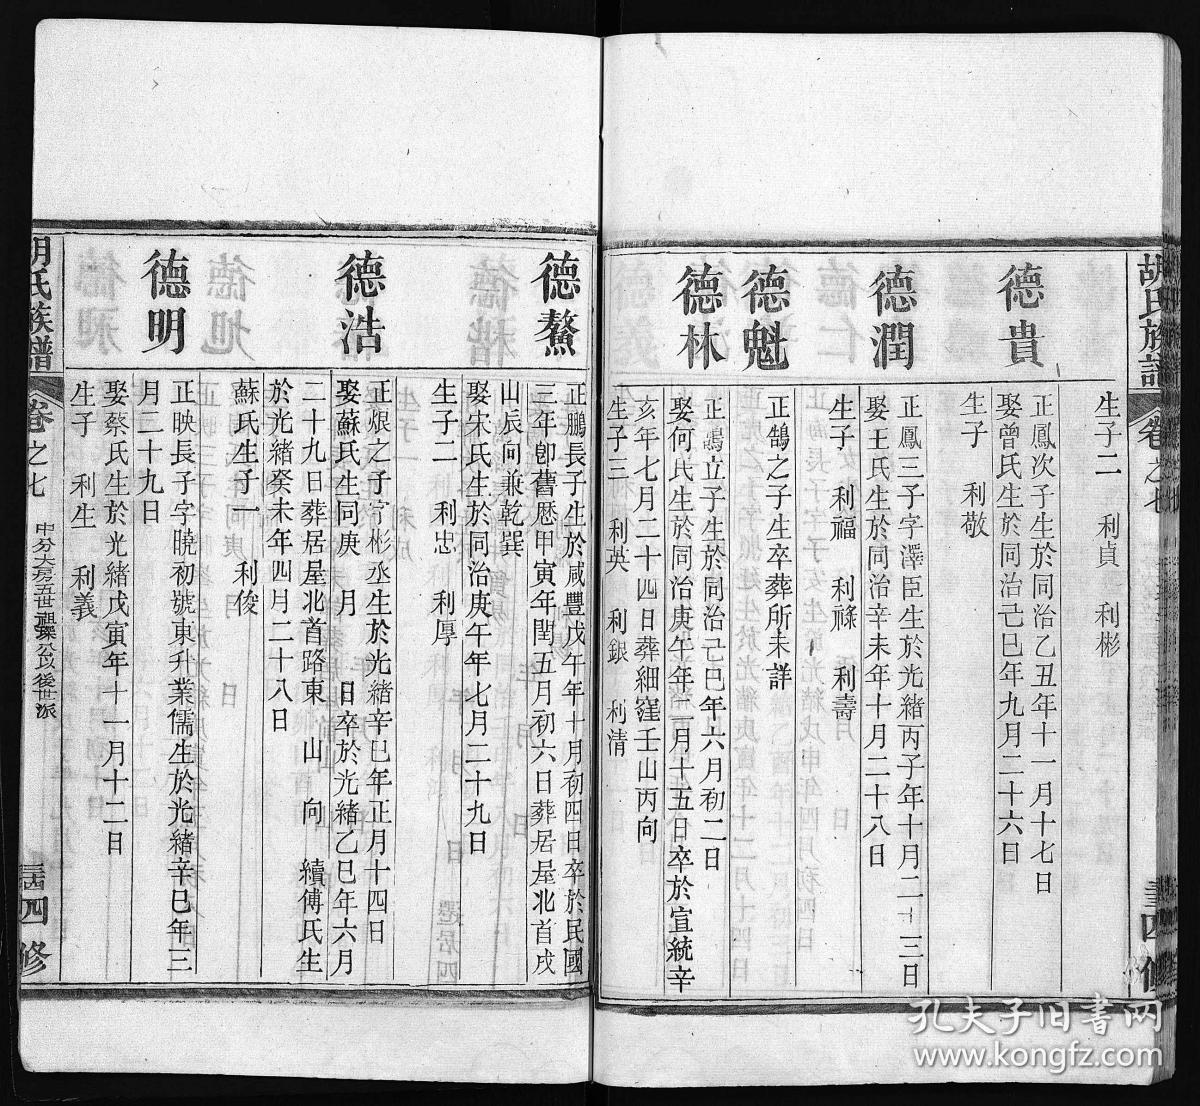 胡氏族譜 卷之七
四修
生子二 利貞 利彬
德貴
正鳳次子生於同治乙丑年十一月十七日
娶曾氏生於同治己巳年九月二十六日
生子一 利敬
德潤
正鳳三子字澤臣生於光緒丙子年十月二十三日
娶王氏生於同治辛未年十月二十八日
生子三 利福 利祿 利壽
德魁
正鵠之子生卒葬所未詳
德林
正鵠立子生於同治己巳年六月初二日
娶何氏生於同治庚午年二月十五日卒於宣統辛
亥年七月二十四日葬細窪壬山丙向
生子三 利英 利銀 利清
德鰲
正鵬長子生於咸豐戊午年十月初四日卒於民國
三年卽舊歷甲寅年閏五月初六日葬居屋北首戌
山辰向兼乾巽
娶宋氏生於同治庚午年七月二十九日
生子二 利忠 利厚
德浩
正烺之子字彬丞生於光緒辛巳年正月十四日
娶蘇氏生同庚 月 日卒於光緒乙巳年六月
二十九日葬居屋北首路東 山 向 續傅氏生
於光緒癸未年四月二十八日
蘇氏生子一 利俊
德明
正映長子字曉初號東升業儒生於光緒辛巳年三
月二十九日
娶蔡氏生於光緒戊寅年十一月十二日
生子二 利生 利義
胡氏族譜 卷之七 中分大房五世祖璨公戊後世派
四修
孔夫子旧书网
www.kongfz.com